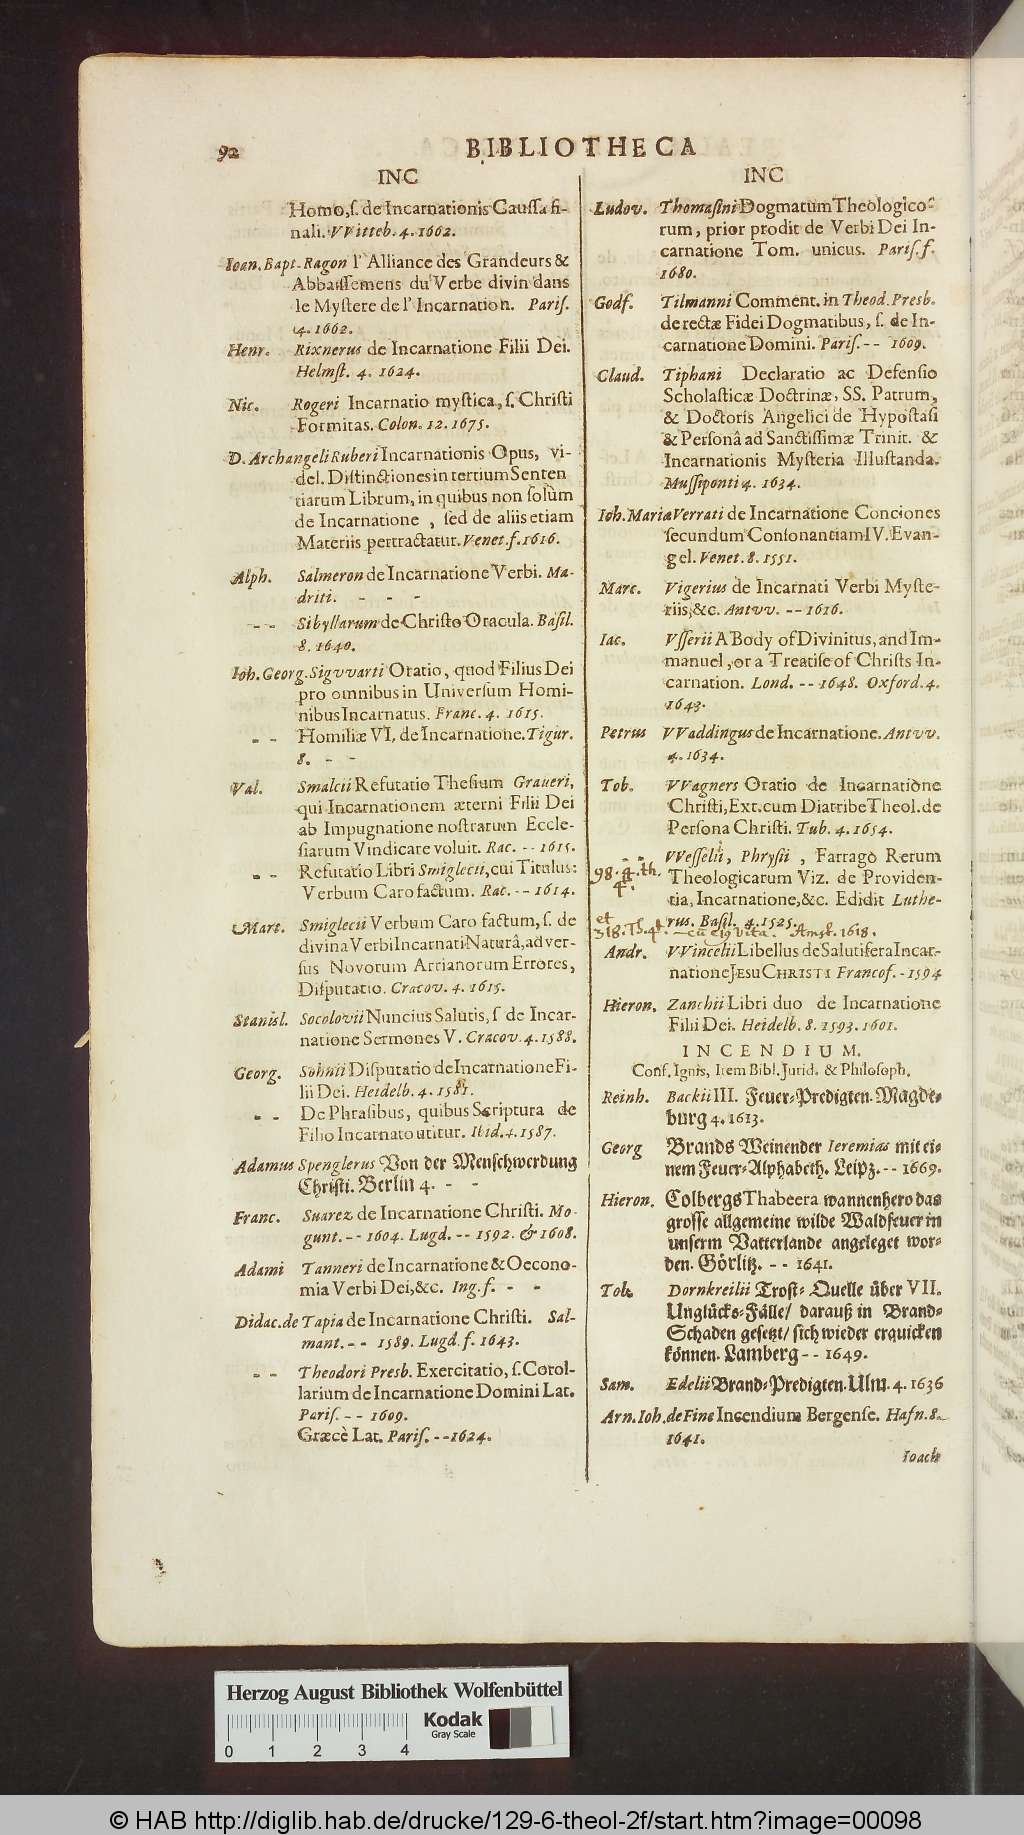 92
BIBLIOTHECA
INC
Homo, ſ. de Incarnationis Cauſſa fi-
nali. VVitteb. 4. 1662.
Ioan. Bapt. Ragon l' Alliance des Grandeurs &
Abbaiſſemens du Verbe divin dans
le Myſtere de l' Incarnation. Pariſ.
4. 1662.
Henr. Rixnerus de Incarnatione Filii Dei.
Helmſt. 4. 1624.
Nic. Rogeri Incarnatio myſtica, ſ. Chriſti
Formitas. Colon. 12. 1675.
D. Archangeli Ruberi Incarnationis Opus, vi-
del. Diſtinctiones in tertium Senten
tiarum Librum, in quibus non ſolùm
de Incarnatione, ſed de aliis etiam
Materiis pertractatur. Venet. f. 1616.
Alph. Salmeron de Incarnatione Verbi. Ma-
driti. - - -
- - Sibyllarum de Chriſto Oracula. Baſil.
8. 1640.
Ioh. Georg. Sigvvarti Oratio, quod Filius Dei
pro omnibus in Univerſum Homi-
nibus Incarnatus. Franc. 4. 1615.
- - Homiliæ VI. de Incarnatione. Tigur.
8. - -
Val. Smalcii Refutatio Theſium Graueri,
qui Incarnationem æterni Filii Dei
ab Impugnatione noſtrarum Eccle-
ſiarum Vindicare voluit. Rac. -- 1615.
- - Refutatio Libri Smiglecii, cui Titulus:
Verbum Caro factum. Rac. -- 1614.
Mart. Smiglecii Verbum Caro factum, ſ. de
divina Verbi Incarnati Naturâ, adver-
ſus Novorum Arrianorum Errores,
Diſputatio. Cracov. 4. 1615.
Stanisl. Socolovii Nuncius Salutis, ſ de Incar-
natione Sermones V. Cracov. 4. 1588.
Georg. Sohnii Diſputatio de Incarnatione Fi-
lii Dei. Heidelb. 4. 1581.
- - De Phraſibus, quibus Scriptura de
Filio Incarnato utitur. Ibid. 4. 1587.
Adamus Spenglerus Von der Menſchwerdung
Chriſti. Berlin 4. - -
Franc. Suarez de Incarnatione Chriſti. Mo-
gunt. -- 1604. Lugd. -- 1592. & 1608.
Adami Tanneri de Incarnatione & Oecono-
mia Verbi Dei, &c. Ing. f. - -
Didac. de Tapia de Incarnatione Chriſti. Sal-
mant. -- 1589. Lugd. f. 1643.
- - Theodori Presb. Exercitatio, ſ. Corol-
larium de Incarnatione Domini Lat.
Pariſ. -- 1609.
Græcè Lat. Pariſ. -- 1624.
INC
Ludov. Thomaſini Dogmatum Theologico-
rum, prior prodit de Verbi Dei In-
carnatione Tom. unicus. Pariſ. f.
1680.
Godf. Tilmanni Comment. in Theod. Presb.
de rectæ Fidei Dogmatibus, ſ. de In-
carnatione Domini. Pariſ. -- 1609.
Claud. Tiphani Declaratio ac Defenſio
Scholaſticæ Doctrinæ, SS. Patrum,
& Doctoris Angelici de Hypoſtaſi
& Perſonâ ad Sanctiſſimæ Trinit. &
Incarnationis Myſteria Illuſtanda.
Muſſiponti 4. 1634.
Ioh. Mariæ Verrati de Incarnatione Conciones
ſecundum Conſonantiam IV. Evan-
gel. Venet. 8. 1551.
Marc. Vigerius de Incarnati Verbi Myſte-
riis, &c. Antvv. -- 1616.
Iac. Vſſerii A Body of Divinitus, and Im-
manuel, or a Treatiſe of Chriſts In-
carnation. Lond. -- 1648. Oxford. 4.
1643.
Petrus VVaddingus de Incarnatione. Antvv.
4. 1634.
Tob. VVagners Oratio de Incarnatione
Chriſti, Ext. cum Diatribe Theol. de
Perſona Chriſti. Tub. 4. 1654.
- - VVeſſelii, Phryſii, Farrago Rerum
98. 4. th. Theologicarum Viz. de Providen-
4. tia, Incarnatione, &c. Edidit Luthe-
et rus. Baſil. 4. 1525.
318. Th. 4. — cū ejq vita. Amſt. 1618.
Andr. VVincelii Libellus de Salutifera Incar-
natione JESU CHRISTI Francof. - 1594
Hieron. Zanchii Libri duo de Incarnatione
Filii Dei. Heidelb. 8. 1593. 1601.
INCENDIUM.
Conf. Ignis, Item Bibl. Jurid. & Philoſoph.
Reinh. Backii III. Feuer-Predigten. Magde-
burg 4. 1613.
Georg Brands Weinender Ieremias mit ei-
nem Feuer-Alphabeth. Leipz. -- 1669.
Hieron. Colbergs Thabeera wannenhero das
groſſe allgemeine wilde Waldfeuer in
unſerm Vatterlande angeleget wor-
den. Görlitz. -- 1641.
Tob. Dornkreilii Troſt-Quelle über VII.
Unglücks-Fälle/ darauß in Brand-
Schaden geſetzt/ ſich wieder erquicken
können. Lamberg -- 1649.
Sam. Edelii Brand-Predigten. Ulm. 4. 1636
Arn. Ioh. de Fine Incendium Bergenſe. Hafn. 8.
1641.
Ioach
Herzog August Bibliothek Wolfenbüttel
0 1 2 3 4
Kodak
Gray Scale
© HAB http://diglib.hab.de/drucke/129-6-theol-2f/start.htm?image=00098